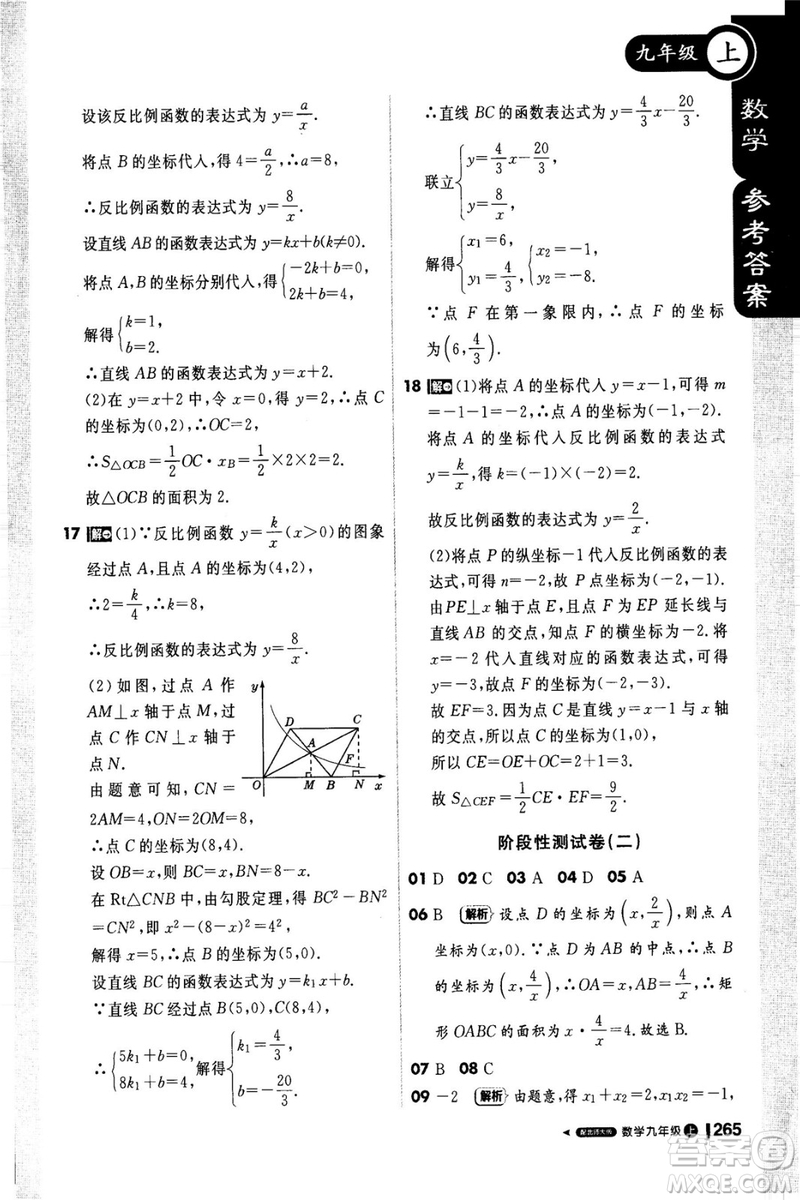 九年级 上
数学 参考答案
设该反比例函数的表达式为 y=a/x.
将点 B 的坐标代入,得 4=a/2,∴a=8,
∴反比例函数的表达式为 y=8/x.
设直线 AB 的函数表达式为 y=kx+b(k≠0).
将点 A,B 的坐标分别代入,得{-2k+b=0,
2k+b=4,
解得{k=1,
b=2.
∴直线 AB 的函数表达式为 y=x+2.
(2)在 y=x+2 中,令 x=0,得 y=2,∴点 C
的坐标为(0,2),∴OC=2,
∴S△OCB=1/2OC·xB=1/2×2×2=2.
故△OCB 的面积为 2.
17 解 (1)∵反比例函数 y=k/x(x>0)的图象
经过点 A,且点 A 的坐标为(4,2),
∴2=k/4,∴k=8,
∴反比例函数的表达式为 y=8/x.
(2)如图,过点 A 作
AM⊥x 轴于点 M,过
点 C 作 CN⊥x 轴于
点 N.
由题意可知,CN=
2AM=4,ON=2OM=8,
y
D C
A F
O M B N x
∴点 C 的坐标为(8,4).
设 OB=x,则 BC=x,BN=8-x.
在 Rt△CNB 中,由勾股定理,得 BC²-BN²
=CN²,即 x²-(8-x)²=4²,
解得 x=5,∴点 B 的坐标为(5,0).
设直线 BC 的函数表达式为 y=k₁x+b.
∵直线 BC 经过点 B(5,0),C(8,4),
∴{5k₁+b=0,
8k₁+b=4,
解得{k₁=4/3,
b=-20/3.
∴直线 BC 的函数表达式为 y=4/3x-20/3.
联立{y=4/3x-20/3,
y=8/x,
解得{x₁=6,
y₁=4/3,
{x₂=-1,
y₂=-8.
∵点 F 在第一象限内,∴点 F 的坐标
为(6,4/3).
18 解 (1)将点 A 的坐标代入 y=x-1,可得 m
=-1-1=-2.
将点 A 的坐标代入反比例函数的表达式
y=k/x,得 k=(-1)×(-2)=2.
故反比例函数的表达式为 y=2/x.
(2)将点 P 的纵坐标-1代入反比例函数的表
达式,可得 n=-2.
由PE⊥x 轴于点 E,且点 F 为 EP 延长线与
直线 AB 的交点,知点 F 的横坐标为-2. 将
x=-2 代入直线对应的函数表达式,可得 y
=-3,∴点 F 的坐标为(-2,-3).
故 EF=3. 因为点 C 是直线 y=x-1 与 x 轴
的交点,所以点 C 的坐标为(1,0),
所以 CE=OE+OC=2+1=3.
故 S△CEF=1/2CE·EF=9/2.
阶段性测试卷(二)
01 D 02 C 03 A 04 D 05 A
06 B 解析 设点 D 的坐标为(x,2/x),则点 A
的坐标为(x,0). ∵点 D 为 AB 的中点,∴点 B
的坐标为(x,4/x),∴OA=x,AB=4/x,∴矩
形 OABC 的面积为 x·4/x=4. 故选 B.
07 B 08 C
09 -2 解析 由题意,得 x₁+x₂=2,x₁x₂=-1,
配北师大版 数学九年级 上 265
答案圈
MXQE.COM